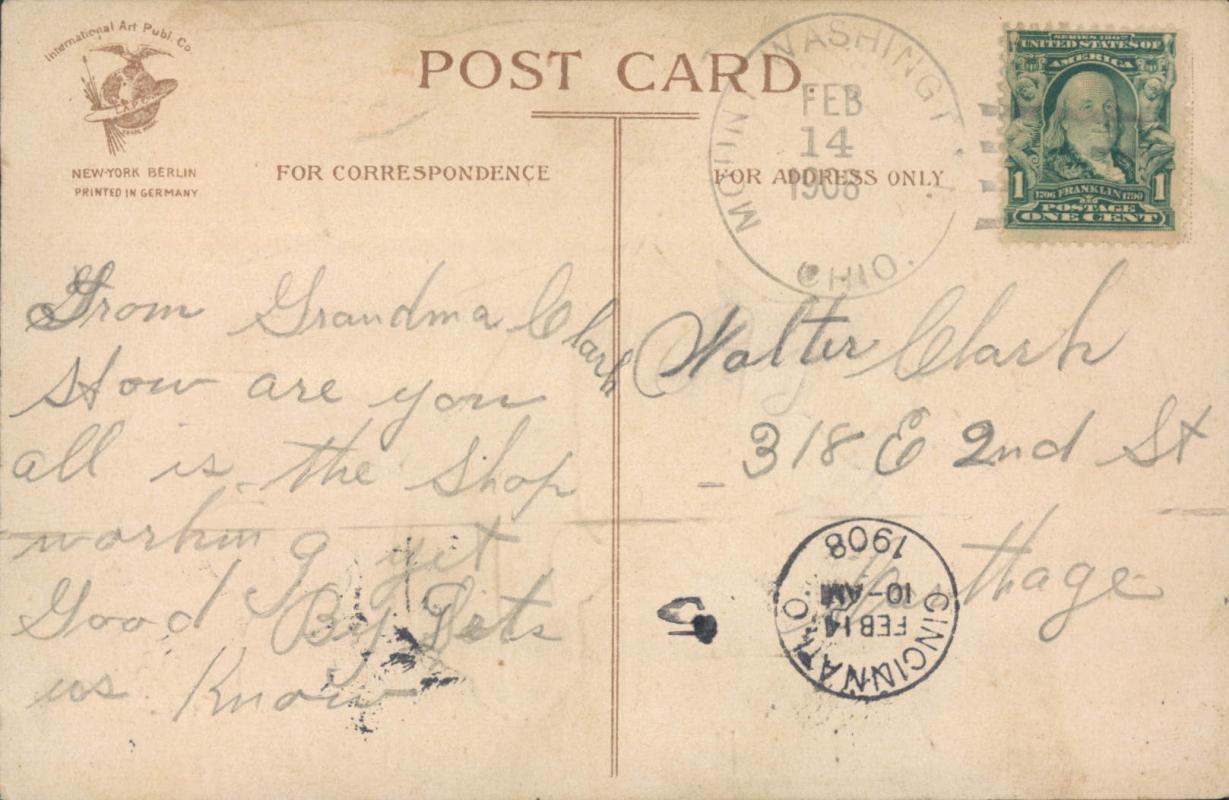 International Art Publ. Co.
NEW-YORK BERLIN
PRINTED IN GERMANY
POST CARD.
FOR CORRESPONDENCE
FOR ADDRESS ONLY
MOUNT WASHINGT
FEB
14
1908
OHIO.
SERIES 1902
UNITED STATES OF
AMERICA
1 1706 FRANKLIN 1790 1
POSTAGE
ONE CENT
From Grandma Clark
How are you
all is the Shop
working yet
Good By Lets
us Know
Walter Clark
318 E 2nd St
CINCINNATI, O.
FEB 14
10-AM
1908
5